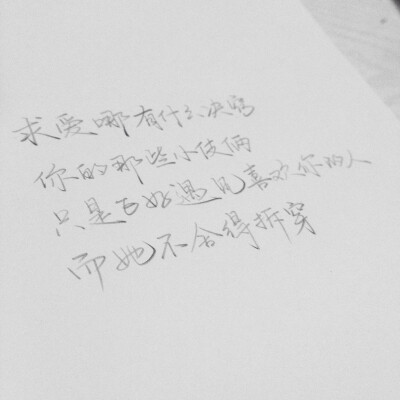 求爱哪有什么决窍
你的那些小伎俩
只是正好遇见喜欢你的人
而她不舍得拆穿